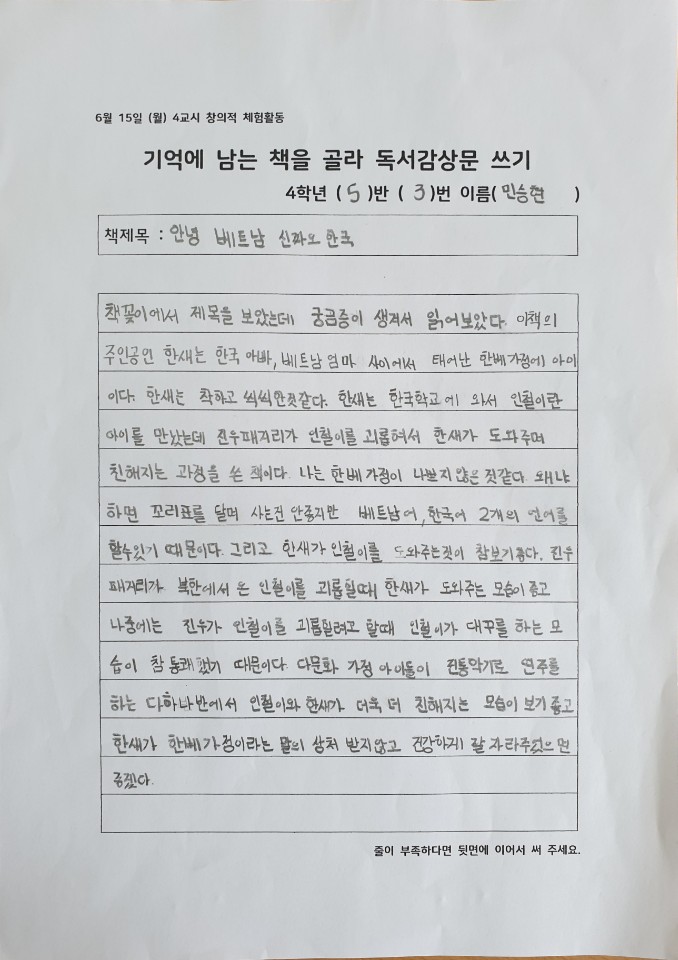 6월 15일 (월) 4교시 창의적 체험활동
기억에 남는 책을 골라 독서감상문 쓰기
4학년 ( 5 )반 ( 3 )번 이름( 민승현 )
책제목 : 안녕 베트남 신짜오 한국
책꽂이에서 제목을 보았는데 궁금증이 생겨서 읽어보았다. 이책의
주인공인 한새는 한국 아빠, 베트남 엄마 사이에서 태어난 한베가정에 아이
이다. 한새는 착하고 씩씩한것같다. 한새는 한국학교에 와서 인철이란
아이를 만났는데 진우패거리가 인철이를 괴롭혀서 한새가 도와주며
친해지는 과정을 쓴 책이다. 나는 한베가정이 나쁘지않은 것같다. 왜냐
하면 꼬리표를 달며 사는건 안좋지만 베트남어, 한국어 2개의 언어를
할수있기 때문이다. 그리고 한새가 인철이를 도와주는것이 참보기좋다. 진우
패거리가 북한에서 온 인철이를 괴롭힐때 한새가 도와주는 모습이 좋고
나중에는 진우가 인철이를 괴롭힐려고 할때 인철이가 대꾸를 하는 모
습이 참 통쾌했기 때문이다. 다문화 가정 아이들이 전통악기로 연주를
하는 다하나반에서 인철이와 한새가 더욱 더 친해지는 모습이 보기 좋고
한새가 한베가정이라는 말의 상처 받지않고 건강하게 잘 자라주었으면
좋겠다.
줄이 부족하다면 뒷면에 이어서 써 주세요.